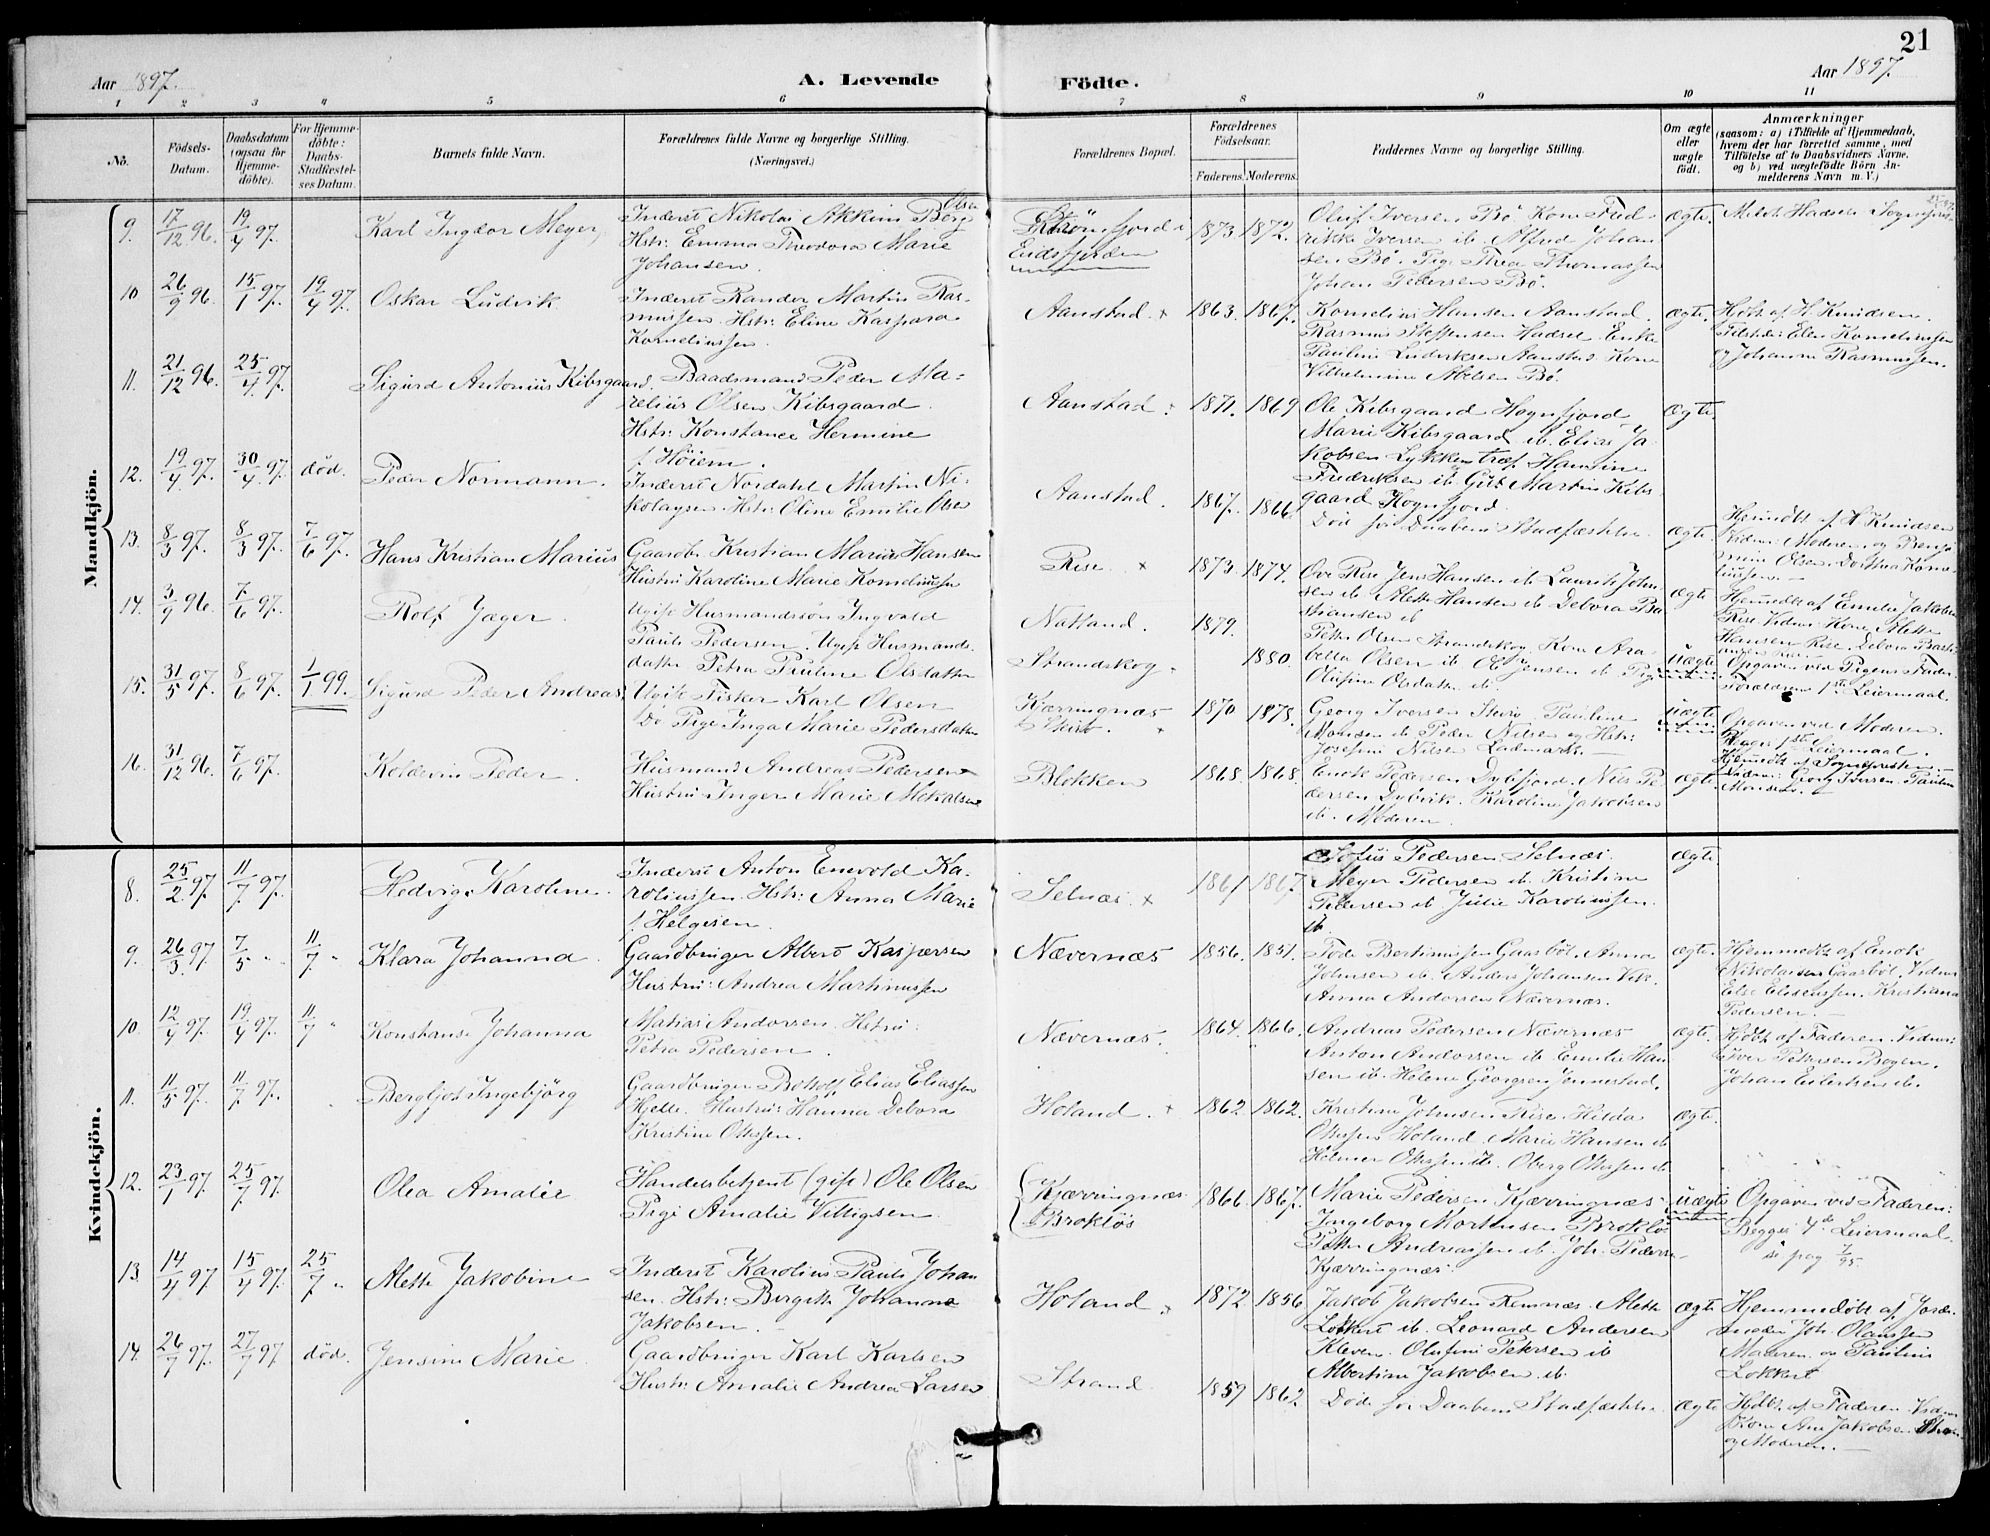 21
Aar 1897.
A. Levende
Födte.
Aar 1897.
1 2 3 4 5 6 7 8 9 10 11
No.
Födsels-Datum.
Daabsdatum (ogsaa for Hjemme-döbte).
For Hjemme-döbte: Daabs-Stadfæstel-ses Datum.
Barnets fulde Navn.
Forældrenes fulde Navne og borgerlige Stilling.
(Næringsvei.)
Forældrenes Bopæl.
Forældrenes Födselsaar.
Faderens. Moderens.
Faddernes Navne og borgerlige Stilling.
Om ægte eller uægte födt.
Anmærkninger
(saasom: a) i Tilfælde af Hjemmedaab, hvem der har forrettet samme, med Tilföielse af to Daabsvidners Navne, og b) ved uægtefödte Börn An-melderens Navn m. V.)
Mandkjön.
9. 17/12 96. 19/4 97. Karl Ingvor Meyer
Inderst Nikolai Akkim Berg Olsen
Hstr: Emma Theodora Marie
Johansen.
Eidsfjorden
1873. 1872.
Oluf Iversen Bö. Kone Fred-
rikke Iversen ib. Alfred Johan-
sen Bö. Pige Thea Thomassen
Johan Pedersen Bö.
ægte.
10 26/9 96. 15/1 97. 19/4 97. Oskar Ludvik
Inderst Randor Martin Ras-
mussen. Hstr: Eline Kaspara
Korneliussen.
Aanstad. x
1863. 1867.
Kornelius Hansen Aanstad.
Rasmus Steffensen Hadsel. Enke
Pauline Ludviksen Aanstad. Kone
Vilhelmine Abelsen Bö.
ægte.
Hjdbt af H. Knudsen.
Tilstede: Elen Korneliussen
og Johanna Rasmussen.
11. 21/12 96. 25/4 97. Sigurd Antonius Kibsgaard.
Baadsmand Peder Ma-
relius Olsen Kibsgaard.
Hstr: Konstance Hermine
f. Höiem.
Aanstad.
1871. 1869
Ole Kibsgaard Hognfjord
Marie Kibsgaard ib. Elias Ja-
kobsen Lykkentref. Hansine
Fredriksen ib. Gut Martin Kibs-
gaard Hognfjord.
ægte.
12. 19/4 97. 30/4 97. död. Peder Normann.
Inderst Nordahl Martin Ni-
kolaysen. Hstr: Oline Emilie Olsen
Aanstad.
1867. 1866.
Död for Daabens Stadfæstelse.
ægte.
13. 8/3 97. 8/3 97. 7/6 97. Hans Kristian Marius
Gaardbr. Kristian Marius Hansen
Hustru Karoline Marie Korneliussen
Rise x
1873. 1874.
Ove Rise Jens Hansen ib. Laurits John-
sen ib. Alette Hansen ib. Debora Ba
stiansen ib
ægte
14. 3/9 96. 7/6 97. Rolf Jæger.
Ugift Husmandssön Ingvald
Pauls Pedersen. Ugift Husmands-
datter Petra Pauline Olsdatter
Natland.
Strandskog.
1879. 1880.
Petter Olsen Strandskog. Kone Ara-
bella Olsen ib. Ole Jensen ib. Pige
Olufine Olsdatter ib.
uægte.
Opgaven ved Pigens Fader
Forældrene 1ste Leiermaal.
15. 31/5 97. 8/6 97. 1/1 99. Sigurd Peder Andreas
Ugift Fisker Karl Olsen
Do Pige Inga Marie Pedersdatter
Kjærringnæs
1870. 1873.
Georg Iversen
Monsen ib. Peder Nilsen og Hstr:
Josefine Nilsen
uægte.
Opgaven ved Moderen.
Begges 1ste Leiermaal.
Hjemdbt af Sognepresten.
Vidner: Georg Iversen. Pauline
Monsen.
16. 31/12 96. 7/6 97. Koldevin Peder.
Husmand Andreas Pedersen
Hustru Inger Marie Mekalsen
Blokken
1868. 1868.
Enok Pedersen Dybfjord. Nils Pe-
dersen Dybvik. Karoline Jakobsen
ib. Moderen.
ægte.
Kvindekjön.
8. 25/2 97. 11/7 97. Hedvig Karoline.
Inderst Anton Enevold Ka-
roliussen. Hstr: Anna Marie
f. Helgesen.
Selnæs. x
1861 1867
Sofus Pedersen Selnæs.
Meyer Pedersen ib. Kristine
Pedersen ib. Julie Karoliussen.
ib.
ægte
9. 26/3 97 7/5 " 11/7 " Klara Johanna.
Gaardbruger Albert Kaspersen
Hustru: Andrea Martinussen
Nævernæs
1856. 1851.
Tode Bertinussen Gaasböl. Anna
Johnsen ib. Anders Johansen Vik.
Anna Andersen Nævernæs.
ægte.
Hjemmedbt af Enok
Nikolaisen Gaasböl. Vidner
Else Eliseussen. Kristiana
Pedersen.
10. 12/4 97. 19/4 97. 11/7 " Konstanse Johanna
Matias Andorsen. Hstru:
Petra Pedersen.
Nævernæs.
1864. 1866.
Andreas Pedersen Nævernæs
Anton Andorsen ib. Emilie Han
sen ib. Helene Georgsen Jennestad.
ægte.
Hjdbt af Faderen. Vidner:
Iver Pettersen Bogen.
Johan Eilertsen ib.
11. 11/5 97. 11/7 97. Bergljot Ingebjörg
Gaardbruger Botolf Elias Eliassen
Helle. Hustru: Hanna Debora
Kristine Ottesen.
Holand. x
1862 1862.
Kristine Johnsen Rise. Hilda
Ottesen Holand. Marie Hansen ib
Hilmer Ottesen ib. Oberg Ottesen ib
ægte.
12. 23/1 97. 25/7 97. Olea Amalie
Handelsbetjent (gift) Ole Olsen
Pige Amalie Vittigsen.
Kjærringnæs.
Brokløs
1866. 1867.
Marie Pedersen Kjærringnæs
Ingeborg Mortensen Brokløs
Petter Andreassen ib. Joh. Peders-
Kjærringnæs.
uægte
Opgaven ved Faderen:
Begges 4de Leiermaal.
se pag 7/95.
13. 14/4 97 15/4 97. 25/7 " Alette Jakobine
Inderst Karolius Pauls Johan
sen. Hstr: Birgitte Johanna
Jakobsen.
Holand x
1872 1856
Jakob Jakobsen Remnæs. Alette
Lokkert ib. Leonard Andersen
Kleven. Olufine Petersen ib
Albertine Jakobsen ib.
ægte
Hjemmedöbt af Jorde-
moder Joh. Olaussen
Moderen og Paulius
Lokkert
14. 26/7 97. 27/7 97 död. Jensine Marie
Gaardbruger Karl Karlsen
Hustr: Amalie Andrea Larsen
Strand
1859 1862
Döde for Daabens Stadfæstelse.
ægte
Hjdbt af Faderen. Vidner
Kone Ane Jakobsen
og Moderen.